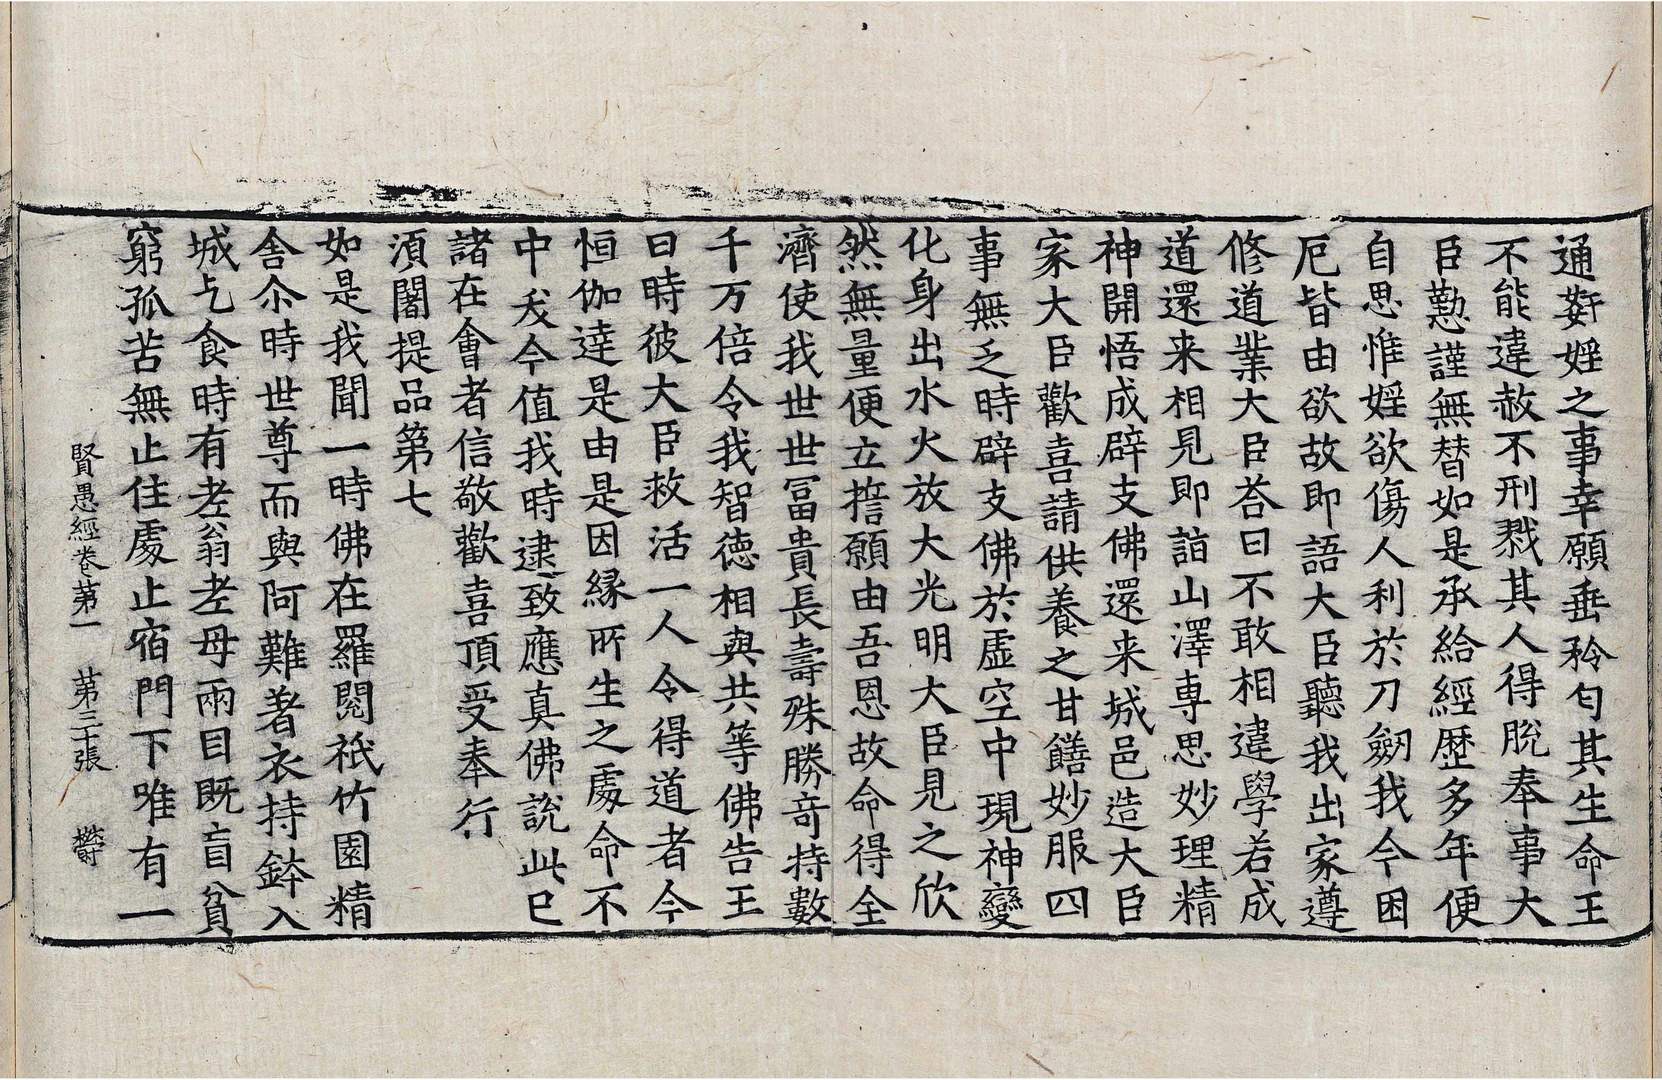 通姧婬之事幸願垂矜匄其生命王
不能違赦不刑戮其人得脫奉事大
臣懃謹無替如是承給經歷多年便
自思惟婬欲傷人利於刀劒我今困
厄皆由欲故即語大臣聽我出家遵
修道業大臣荅曰不敢相違學若成
道還来相見即詣山澤專思妙理精
神開悟成辟支佛還来城邑造大臣
家大臣歡喜請供養之甘饍妙服四
事無乏時辟支佛於虛空中現神變
化身出水火放大光明大臣見之欣
然無量便立誓願由吾恩故命得全
濟使我世世冨貴長壽殊勝奇持數
千万倍令我智德相與共等佛告王
曰時彼大臣救活一人令得道者今
恒伽達是由是因緣所生之處命不
中夭今值我時逮致應真佛說此已
諸在會者信敬歡喜頂受奉行
湏闍提品第七
如是我聞一時佛在羅閱祇竹園精
舍尒時世尊而與阿難著衣持鉢入
城乞食時有老翁老母兩目既盲貧
窮孤苦無止住處止宿門下唯有一
賢愚經卷第一 第三十張 欝